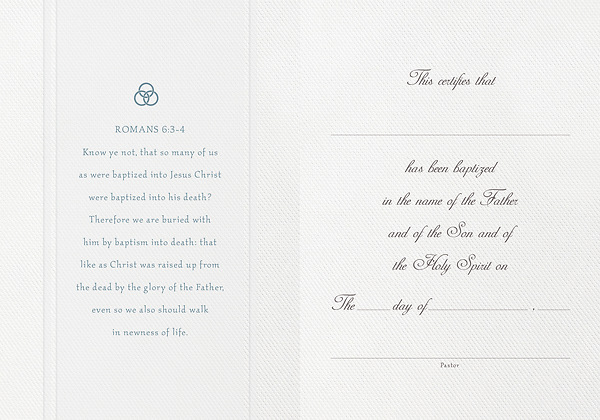 ROMANS 6:3-4
Know ye not, that so many of us
as were baptized into Jesus Christ
were baptized into his death?
Therefore we are buried with
him by baptism into death: that
like as Christ was raised up from
the dead by the glory of the Father,
even so we also should walk
in newness of life.
This certifies that
has been baptized
in the name of the Father
and of the Son and of
the Holy Spirit on
The ____ day of ____________ , ____
Pastor